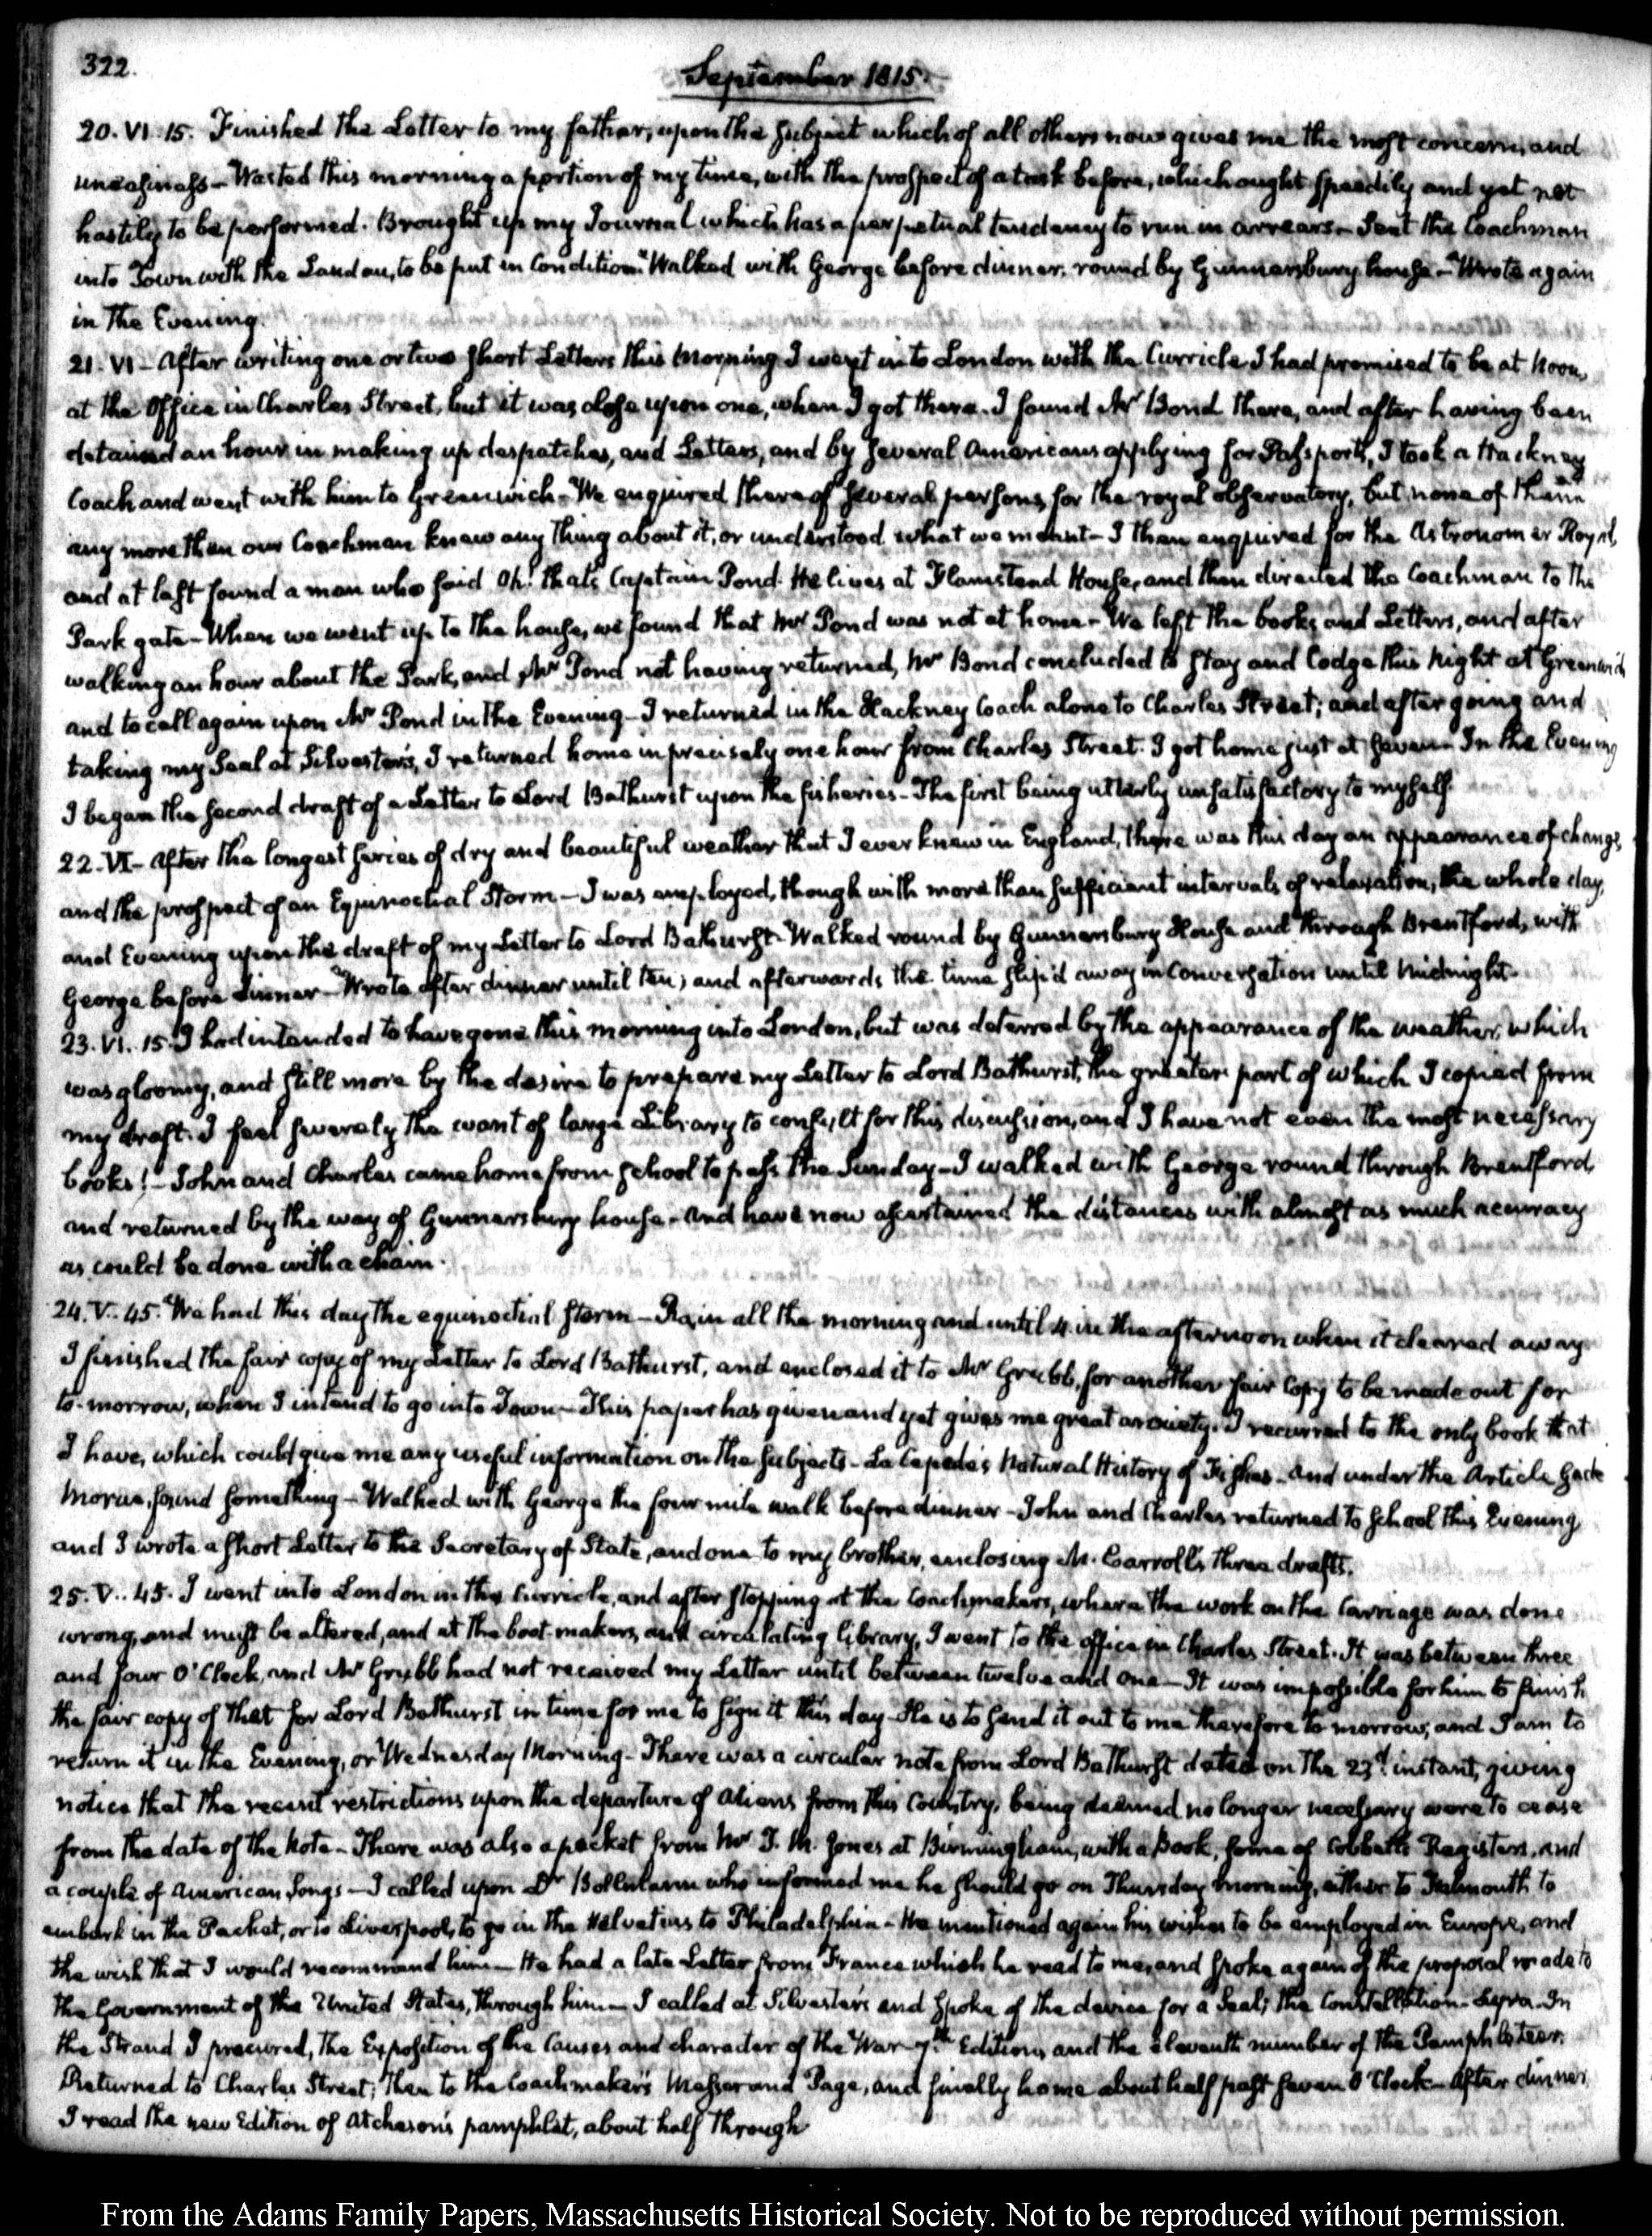 322.
September 1815.
20. VI. 15. Finished the Letter to my father, upon the subject which of all others now gives me the most concern, and
uneasiness - Wasted this morning a portion of my time, with the prospect of a task before, which ought speedily and yet not
hastily to be performed. Brought up my Journal which has a perpetual tendency to run in arrears - Sent the Coachman
into Town with the Landau, to be put in Condition. Walked with George before dinner, round by Gunnersbury house - Wrote again
in the Evening.
21. VI - After writing one or two short Letters this Morning I went into London with the Curricle I had promised to be at Noon,
at the Office in Charles Street, but it was close upon one, when I got there. I found Mr Bond there, and after having been
detained an hour in making up despatches, and Letters, and by several Americans applying for Passports, I took a Hackney
Coach and went with him to Greenwich - We enquired there of several persons, for the royal observatory, but none of them
any more than our Coachman knew any thing about it, or understood what we meant - I then enquired for the Astronomer Royal,
and at last found a man who said Oh! that's Captain Pond. He lives at Flamstead House, and then directed the Coachman to the
Park gate - When we went up to the house, we found that Mr Pond was not at home - We left the books and Letters, and after
walking an hour about the Park, and Mr Pond not having returned, Mr Bond concluded to stay and lodge this night at Greenwich
and to call again upon Mr Pond in the Evening - I returned in the Hackney Coach alone to Charles Street; and after going and
taking my Seal at Silvester's, I returned home in precisely one hour from Charles Street. I got home just at seven - In the Evening
I began the second draft of a Letter to Lord Bathurst upon the fisheries - The first being utterly unsatisfactory to myself.
22. VI - After the longest series of dry and beautiful weather that I ever knew in England, there was this day an appearance of change,
and the prospect of an Equinoctial Storm - I was employed, though with more than sufficient intervals of relaxation, the whole day,
and Evening upon the draft of my Letter to Lord Bathurst - Walked round by Gunnersbury House and through Brentford, with
George before dinner - Wrote after dinner until ten; and afterwards the time slip'd away in Conversation until Midnight.
23. VI. 15. I had intended to have gone this morning into London, but was deterred by the appearance of the weather, which
was gloomy, and still more by the desire to prepare my Letter to Lord Bathurst, the greater part of which I copied from
my draft. I feel severely the want of large Library to consult for this discussion, and I have not even the most necessary
books! - John and Charles came home from school to pass the Sunday - I walked with George round through Brentford,
and returned by the way of Gunnersbury house - and have now ascertained the distances with almost as much accuracy
as could be done with a chain.
24. V. 45. We had this day the equinoctial storm - Rain all the morning and until 4 in the afternoon when it cleared away
I finished the fair copy of my Letter to Lord Bathurst, and enclosed it to Mr Grubb, for another fair Copy to be made out for
to-morrow, when I intend to go into Town - This paper has given and yet gives me great anxiety. I recurred to the only book that
I have, which could give me any useful information on the subjects - La Cepede's Natural History of Fishes - and under the Article Gade
Morue, found something - Walked with George the four mile walk before dinner - John and Charles returned to school this Evening
and I wrote a short Letter to the Secretary of State, and one to my brother, enclosing Mr. Carroll's three drafts.
25. V. 45. I went into London in the Curricle, and after stopping at the Coachmakers, where the work on the Carriage was done
wrong, and must be altered, and at the boot-makers, and circulating library, I went to the office in Charles Street. It was between three
and four O'Clock, and Mr Grubb had not received my Letter until between twelve and one - It was impossible for him to finish
the fair copy of that for Lord Bathurst in time for me to sign it this day - He is to send it out to me therefore to-morrow, and I am to
return it in the Evening, or Wednesday Morning - There was a circular note from Lord Bathurst dated on the 23d instant, giving
notice that the recent restrictions upon the departure of Aliens from this Country, being deemed no longer necessary were to cease
from the date of the Note - There was also a packet from Mr T. M. Jones at Birmingham, with a Book, some of Cobbett's Registers, and
a couple of American Songs - I called upon Dr Bollmann who informed me he should go on Thursday morning, either to Falmouth to
embark in the Packet, or to Liverpool, to go in the Helvetius to Philadelphia - He mentioned again his wishes to be employed in Europe, and
the wish that I would recommend him - He had a late Letter from France which he read to me, and spoke again of the proposal made to
the Government of the United States, through him - I called at Silvester's and spoke of the device for a Seal; the Constellation - Lyra - In
the Strand I procured, the Exposition of the Causes and character of the War - 7th Edition, and the Eleventh number of the Pamphleteer.
Returned to Charles Street; then to the Coachmaker's Messer and Page, and finally home about half past seven O'Clock - After dinner
I read the new Edition of Atcheson's pamphlet, about half through
From the Adams Family Papers, Massachusetts Historical Society. Not to be reproduced without permission.